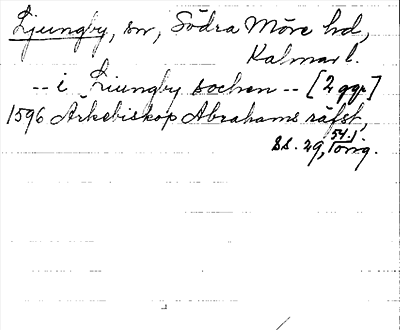 Ljungby, sn, Södra Möre hd,
Kalmar l.
-- i Liungby sochen -- [2 ggr]
1596 Ärkebiskop Abrahams räfst,
ss. 29, 54. i orig.